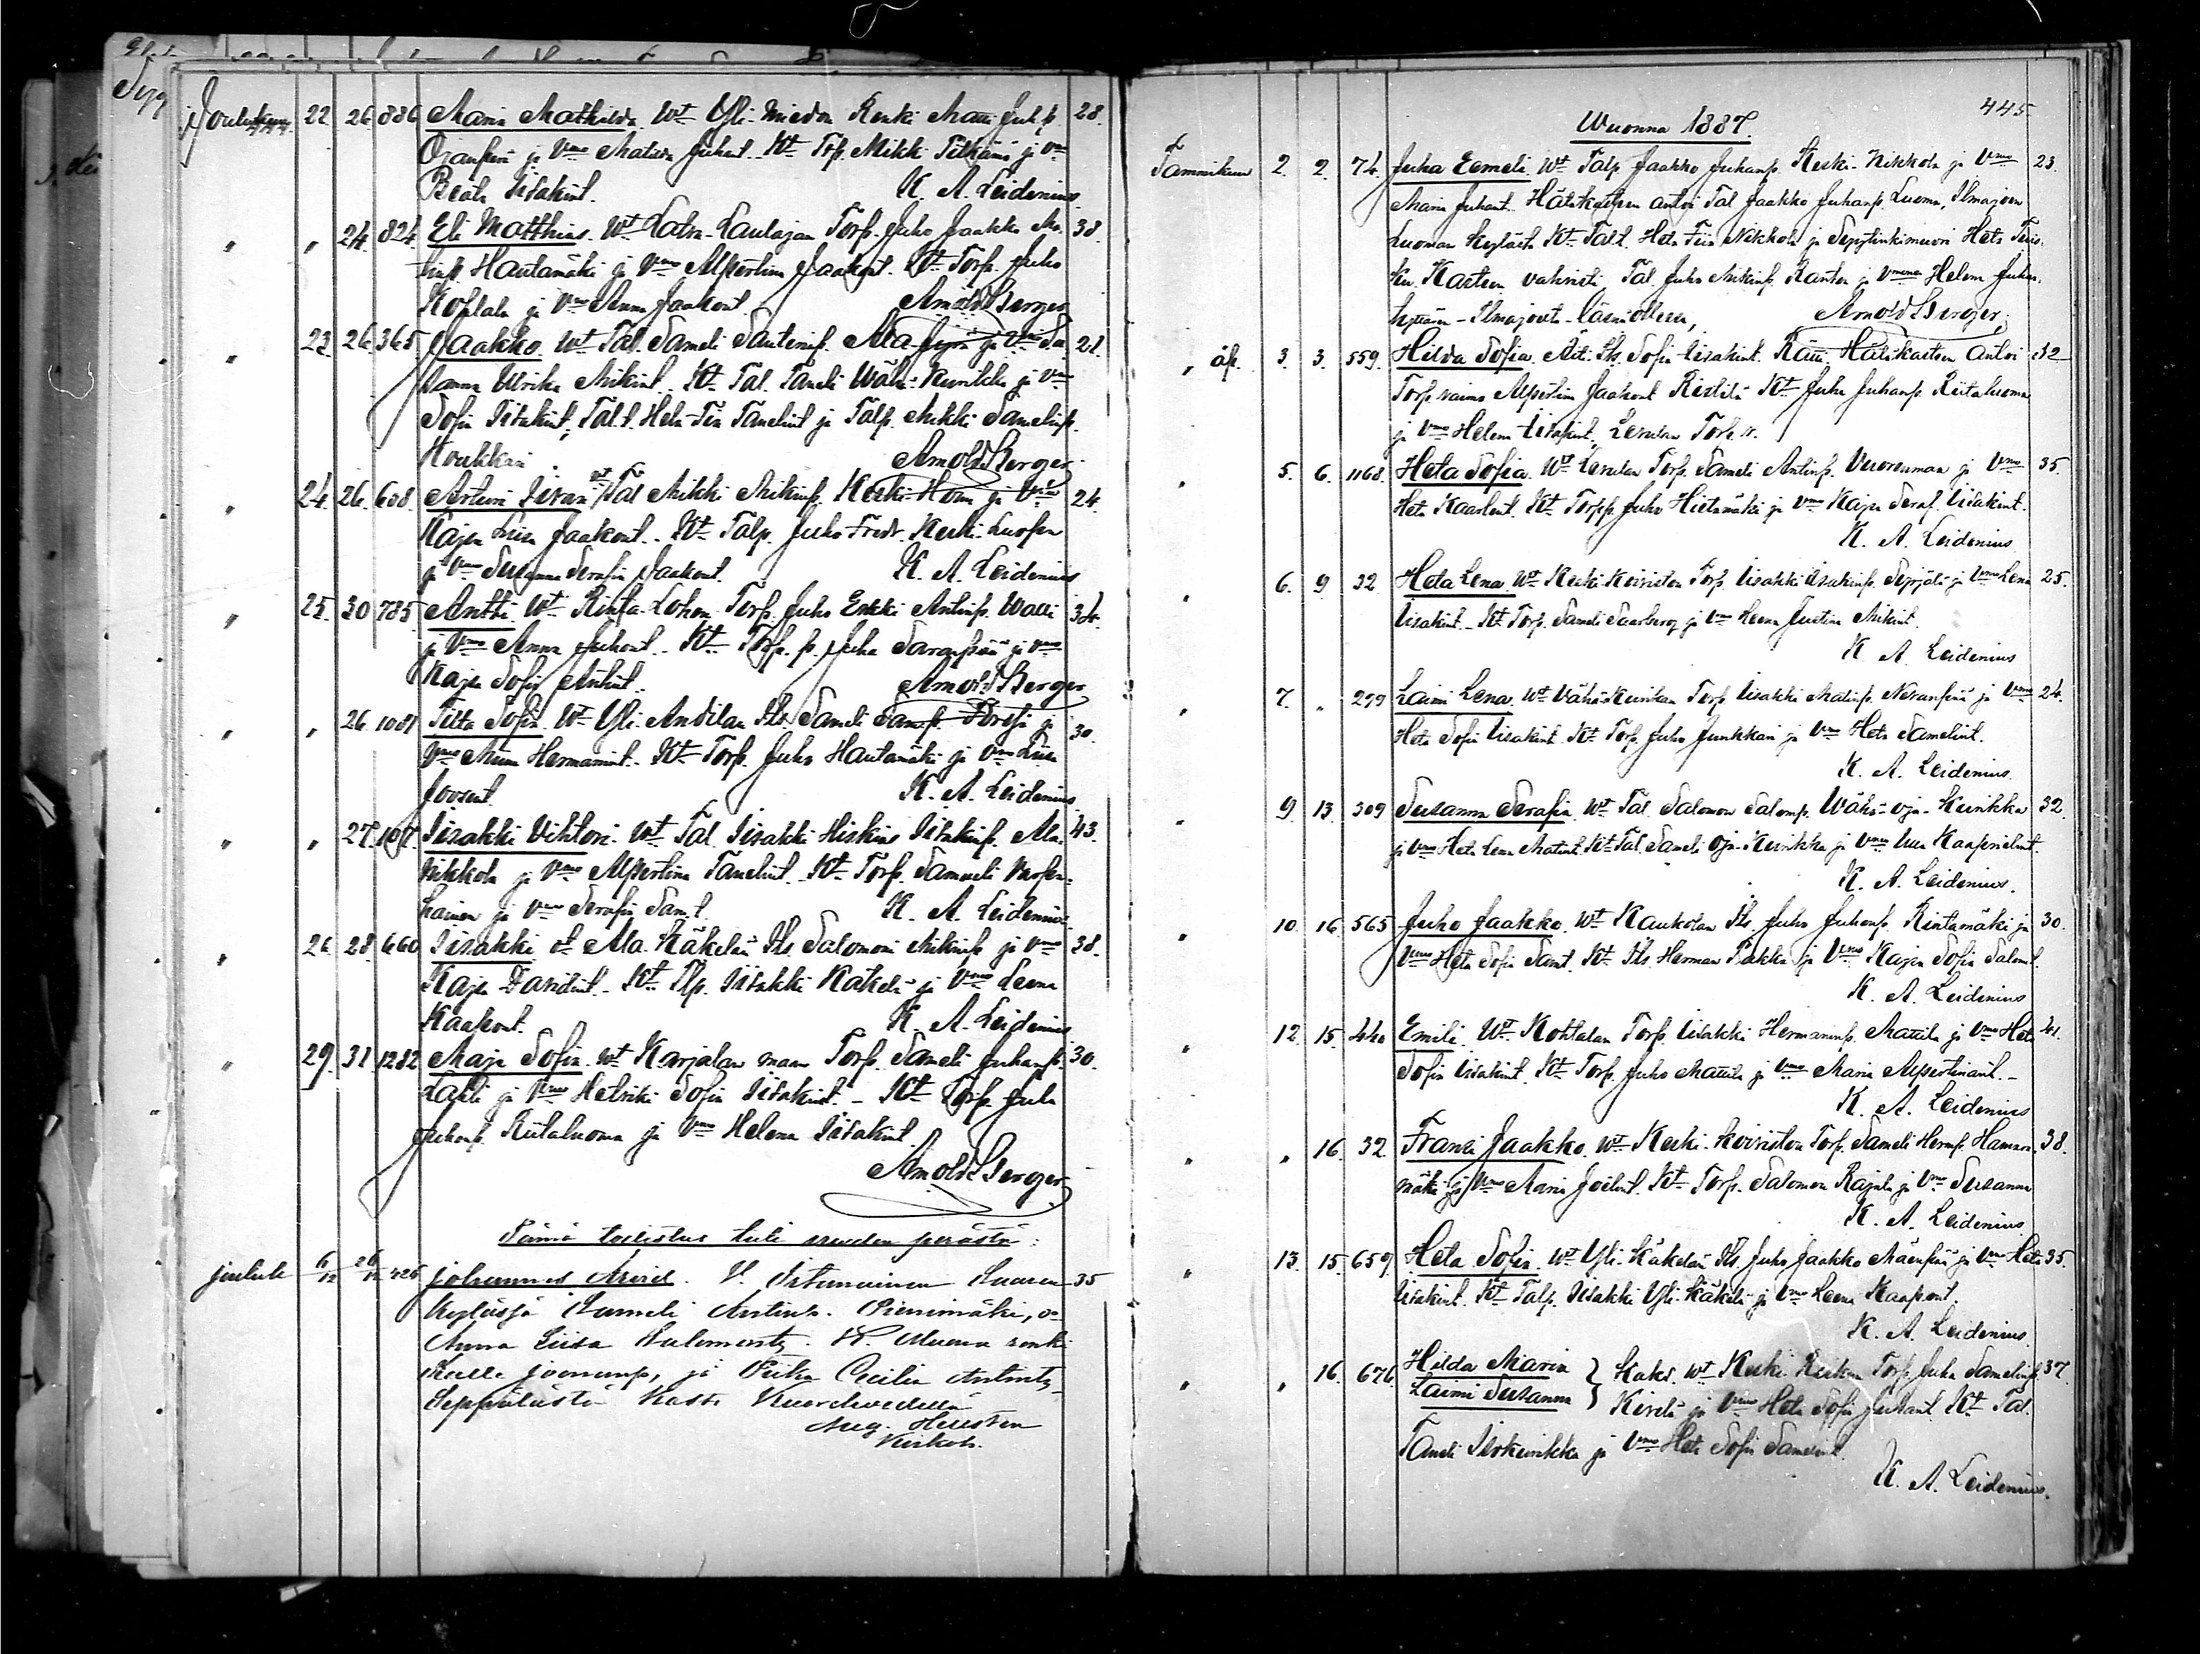 Joulukuu 22 26 886 Maria Mathilda. Wt Yli-Miedon Renki Matti Juh.p. 28.
Ojanperä ja Vmo Matilda Juhant. Kt Torp. Mikki Pitkämä ja Vmo
Beata Iisakint. K. A. Leidenius
" " 24 824 Eli Matthias. Wt Latva-Laulajan Torp. Juho Jaakko 38.
Hautamäki ja Vmo Alpertina Jaakont. Kt Torp. Juho
ja Vmo Anna Jaakont. Arnold Berger
" 23. 26. 365 Jaakko Wt Tal. Sameli Santerinp. ja Vmo 21.
sanna Ulrika Mikint. Kt Tal. Taneli Wähä-Kurikka ja Vmo
Sofia Iisakint, Tal.t. Heta-Fia Tanelint ja Talp. Mikki Samelinp.
Houkkari. Arnold Berger
" 24. 26. 608. Arturi Iivari wt Tal Mikki Mikinp. ja Vmo 24
Kajsa Liisa Jaakont. Kt Talp. Juho Fredr. Keski-Luopa
ja Vmo Susanna Serafia Jaakont. K. A. Leidenius
" 25. 30 785 Antti. Wt Rinta-Lohon Torp. Juho Erkki Antinp. Walli 34.
ja Vmo Anna Juhont. Kt. Torp. p. Juha Saranpää ja Vmo
Kajsa Sofia Antint. Arnold Berger
" " 26. 1081 Sofia. Wt Yli-Andilan Its Sameli ja 30.
Vmo Hermannint. Kt Torp. Juho Hautamäki ja Vmo Liisa
Joosent. K. A. Leidenius
" " 27. 107. Iisakki Vihtori. Wt Tal Iisakki Hiskias Iisakinp. Ala- 43.
Nikkola ja Vmo Alpertina Tanelint. Kt Torp. Samueli
lainen ja Vmo Serafia Sam.t. K. A. Leidenius
" 26. 28. 660. Iisakki. Ala-Käkelän Its Salomoni Mikinp ja Vmo 38.
Kajsa Davidint. Kt. Tlp. Iisakki Käkelä ja Vmo Leena
Kaapont. K. A. Leidenius
" 29. 31 1282 Maja Sofia. Wt Karjalan maan Torp. Sameli Juhanp. 30.
Lahti ja Vmo Hetriki Sofia Iisakint. Kt Torp. Juha
Juhonp. Riitaluoma ja Vmo Helena Iisakint.
Arnold Berger
Tämä todistus tuli muuden perästä:
jouluk 6/12 26/12 426 Johannes Arvid. V. Itsenäinen 35
kylässä Sameli Antinp. Pienimäki, v:o
Anna Liisa Salomonty. K. Muona renki
Kalle Joonanp, ja Erika Cecilia Antinty
Seppälästä. Kasti Kuordwedella
Aug. Hellsten
Kirkoh.
445
Wuonna 1887.
Tammikuu 2. 2. 74. Juha Eemeli. Wt Talp. Jaakko Juhanp. Keski-Nikkola ja Vmo 23.
Maria Juhant. Antoi Tal Jaakko Juhanp. Luoma, Ilmajoen
Luoman kylästä Kt Tal.t. Heta Fia Nikkola ja Heta Fiis-
ku. Kasteen vahvisti Tal. Juho Mikinp. Rantea ja Vmonsa Helena Juha.
Ilmajoesta läsnäollessa, Arnold Berger.
" äp. 3. 3. 559. Hilda Sofia. Äiti Its. Sofia Iisakint. Räme. Hätäkasteen antoi 32
Torp. vaimo Alpertina Jaakont Ristilä Kt Juho Juhanp. Riitaluoma
ja Vmo Helena Iisakint, Levulan Torp. v.
" 5. 6. 1168. Heta Sofia. Wt Levulan Torp. Sameli Antinp. Vuorenmaa ja Vmo 35.
Heta Kaarlent. Kt Torpp. Juho Hietamäki ja Vmo Kajsa Seraf. Iisakint.
K. A. Leidenius
" 6. 9 32 Heta Lena. Wt Keski-Koiviston Torp. Iisakki Iisakinp. Seppälä ja Vmo Lena 25.
Iisakint. Kt Torp. Sameli Saarberg ja Vmo Leena Justina Mikint.
K. A. Leidenius
" 7. " 299 Laimi Lena. Wt Vähä-Kurikan Torp Iisakki Matinp. Nevanperä ja Vmo 24.
Heta Sofia Iisakint. Kt Torp. Juho Junkkari ja Vmo Heta Samelint.
K. A. Leidenius.
" 9. 13. 309 Susanna Serafia. Wt Tal Salomon Salomp. Wähä-oja-Kurikka 32.
ja Vmo Heta Lena Matint. Kt Tal. Sameli Oja-Kurikka ja Vmo Kaaprielint.
K. A. Leidenius.
" 10. 16. 565 Juho Jaakko. Wt Kaukolan Its. Juho Juhonp. Rintamäki ja 30.
Vmo Heta Sofia Samt. Kt Its. Herman Pukka ja Vmo Kajsa Sofia Salomt.
K. A. Leidenius
" 12. 15. 440 Emili. Wt. Kohtalan Torp. Iisakki Hermaninp. Mattila ja Vmo Heta 41.
Sofia Iisakint. Kt Torp. Juho Mattila ja Vmo Maria Alpertinant.
K. A. Leidenius
" " 16. 32 Franzi Jaakko. Wt Keski-Koiviston Torp. Sameli Hermp. Hannu- 38.
mäki ja Vmo Maria Joelint. Kt Torp. Salomon Rajala ja Vmo Susanna
K. A. Leidenius
" 13. 15. 659. Heta Sofia. Wt Yli-Käkelän Its. Juho Jaakko Mäenpää ja Vmo Heta 35.
Iisakint. Kt Talp. Iisakki Yli-Käkelä ja Vmo Leena Kaapont.
K. A. Leidenius
" " 16. 676 Hilda Maria } Kaks. Wt Keski Torp. Juha Samelinp. 37.
Laimi Susanna } ja Vmo Heta Sofia Juhant. Kt Tal.
Taneli Iso-Kurikka ja Vmo Heta Sofia Samelint.
K. A. Leidenius.